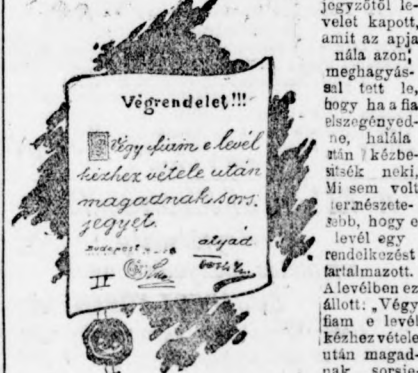 Végrendelet!!!
Végy fiam e levél
kézhez vétele után
magadnak sors-
jegyet.
Budapest
atyád
II
jegyzőtől le-
velet kapott,
amit az apja
nála azon
meghagyás-
sal tett le,
hogy ha a fia
elszegényed-
ne, halála
után kézbe-
sitsék neki,
Mi sem volt
természete-
sebb, hogy e
levél egy
rendelkezést
tartalmazott.
A levélben ez
állott: „Végy
fiam e levél
kézhez vétele
után magad-
nak sorsje-